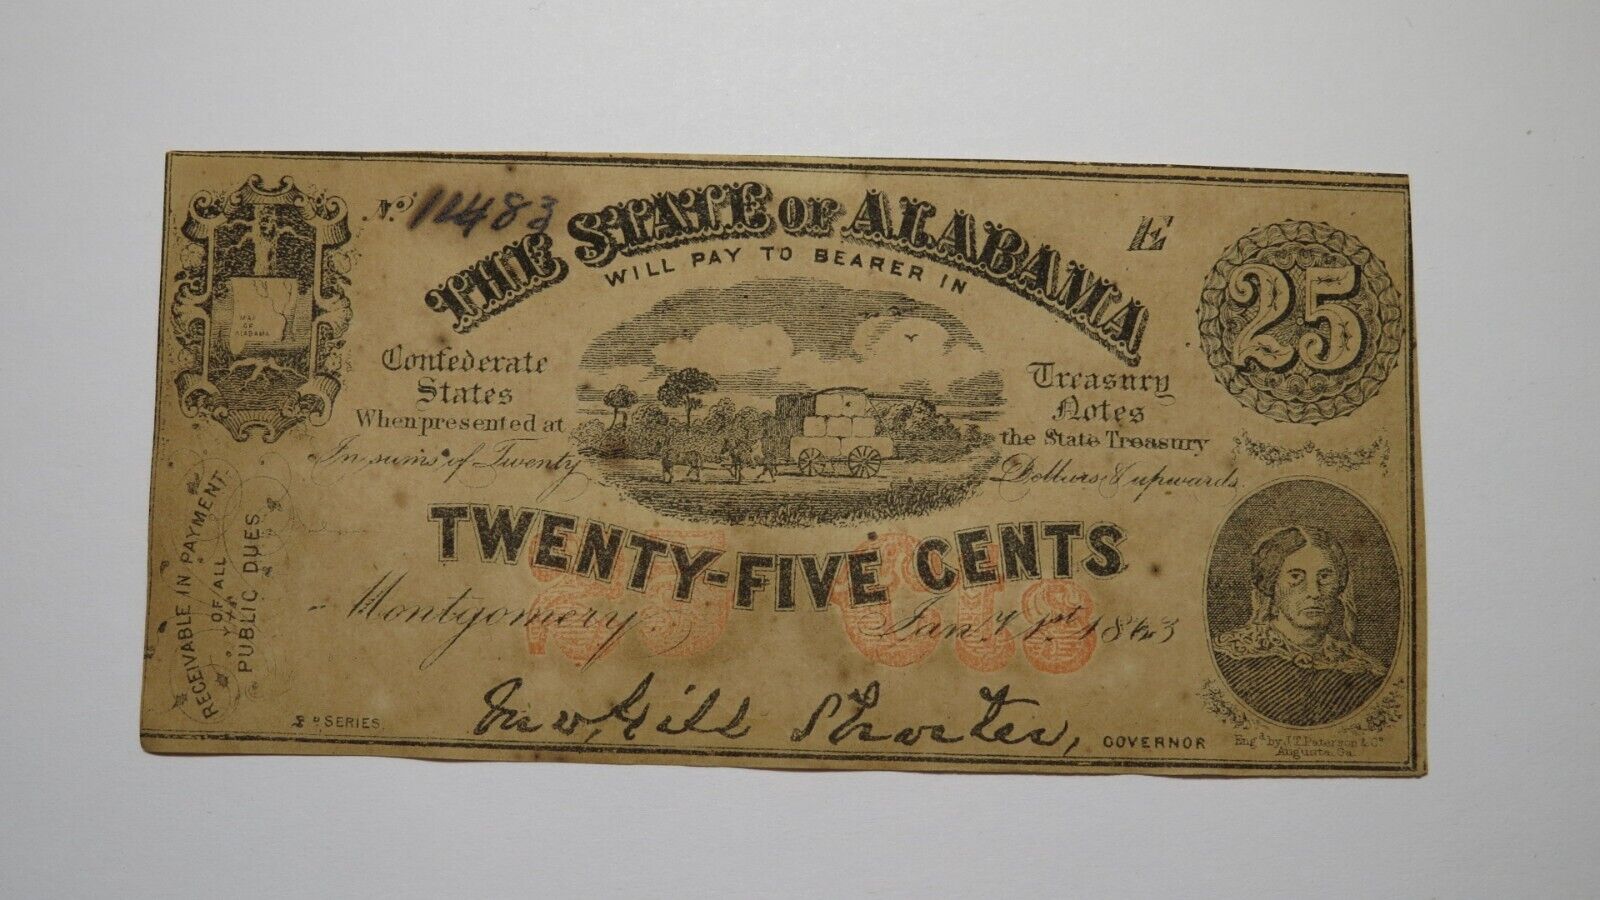 No 11483
E
THE STATE OF ALABAMA
WILL PAY TO BEARER IN
25
MAP
OF
ALABAMA
Confederate
States
Treasury
Notes
When presented at
the State Treasury
In sums of Twenty
Dollars & upwards.
TWENTY-FIVE CENTS
25 CTS
Montgomery
Jany 1st 1863
RECEIVABLE IN PAYMENT
OF ALL
PUBLIC DUES
SERIES
Jno. Gill Shorter,
GOVERNOR
Engd by J.T. Paterson & Co
Augusta, Ga.